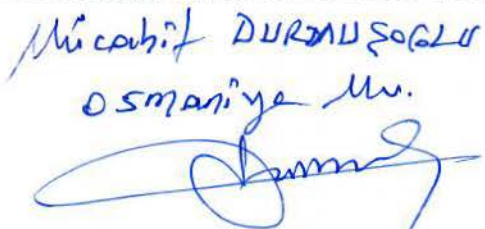 Mücahit DURMUŞOĞLU
OSMANİYE Mv.